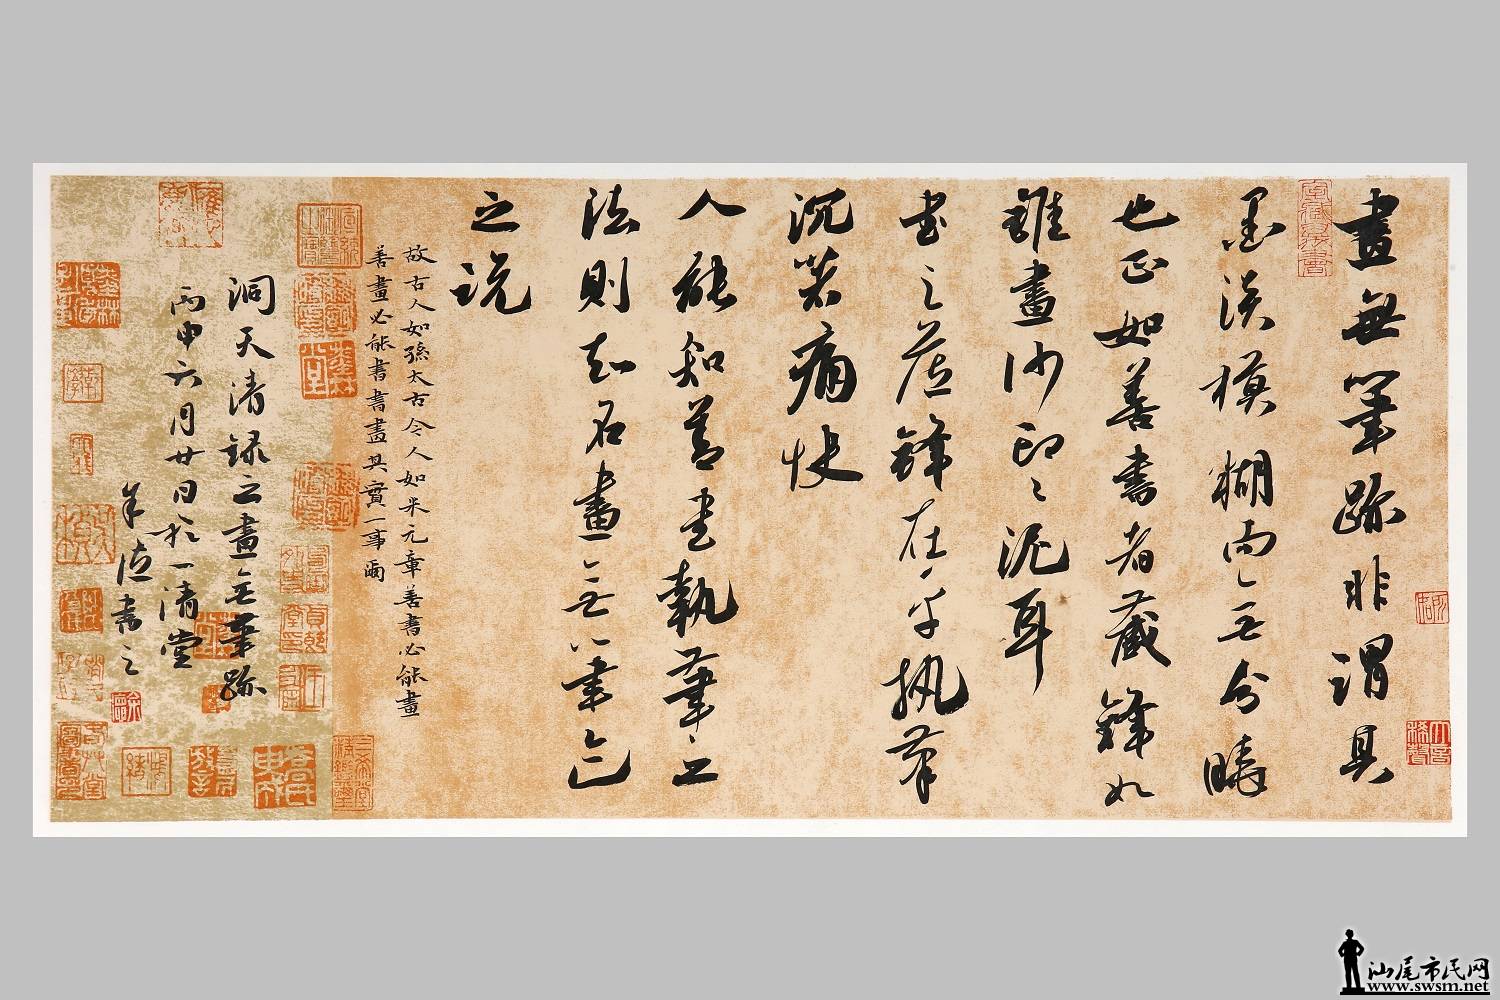 畫無筆跡非謂其
墨淡模糊而無分曉
也正如善書者藏鋒如
錐畫沙印々泥耳
書之藏鋒在乎執筆
沉著痛快
人能知善書執筆之
法則知名畫無筆跡
之說
故古人如孫太古今人如米元章善書必能畫
善畫必能書書畫其實一事爾
洞天清録之畫無筆跡
丙申六月廿日於一清堂
德書之
汕尾市民网
www.swsm.net